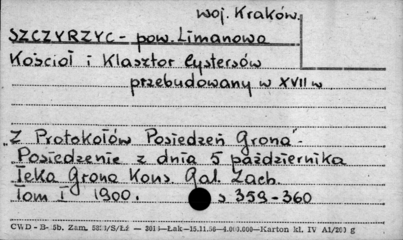 woj. Kraków.
SZCZYRZYC - pow. Limanowa
Kościoł i Klasztor Cystersów
przebudowany w XVII w
„Z Protokołów Posiedzeń Grona"
Posiedzenie z dnia 5 października
Teka Grona Kons. Gal. Zach.
Tom I 1900. s 359-360
CWD - B- 5b. Zam. /S/Łż — —Łak—15.11.56—4.000.000—Karton kl. IV A1/ g